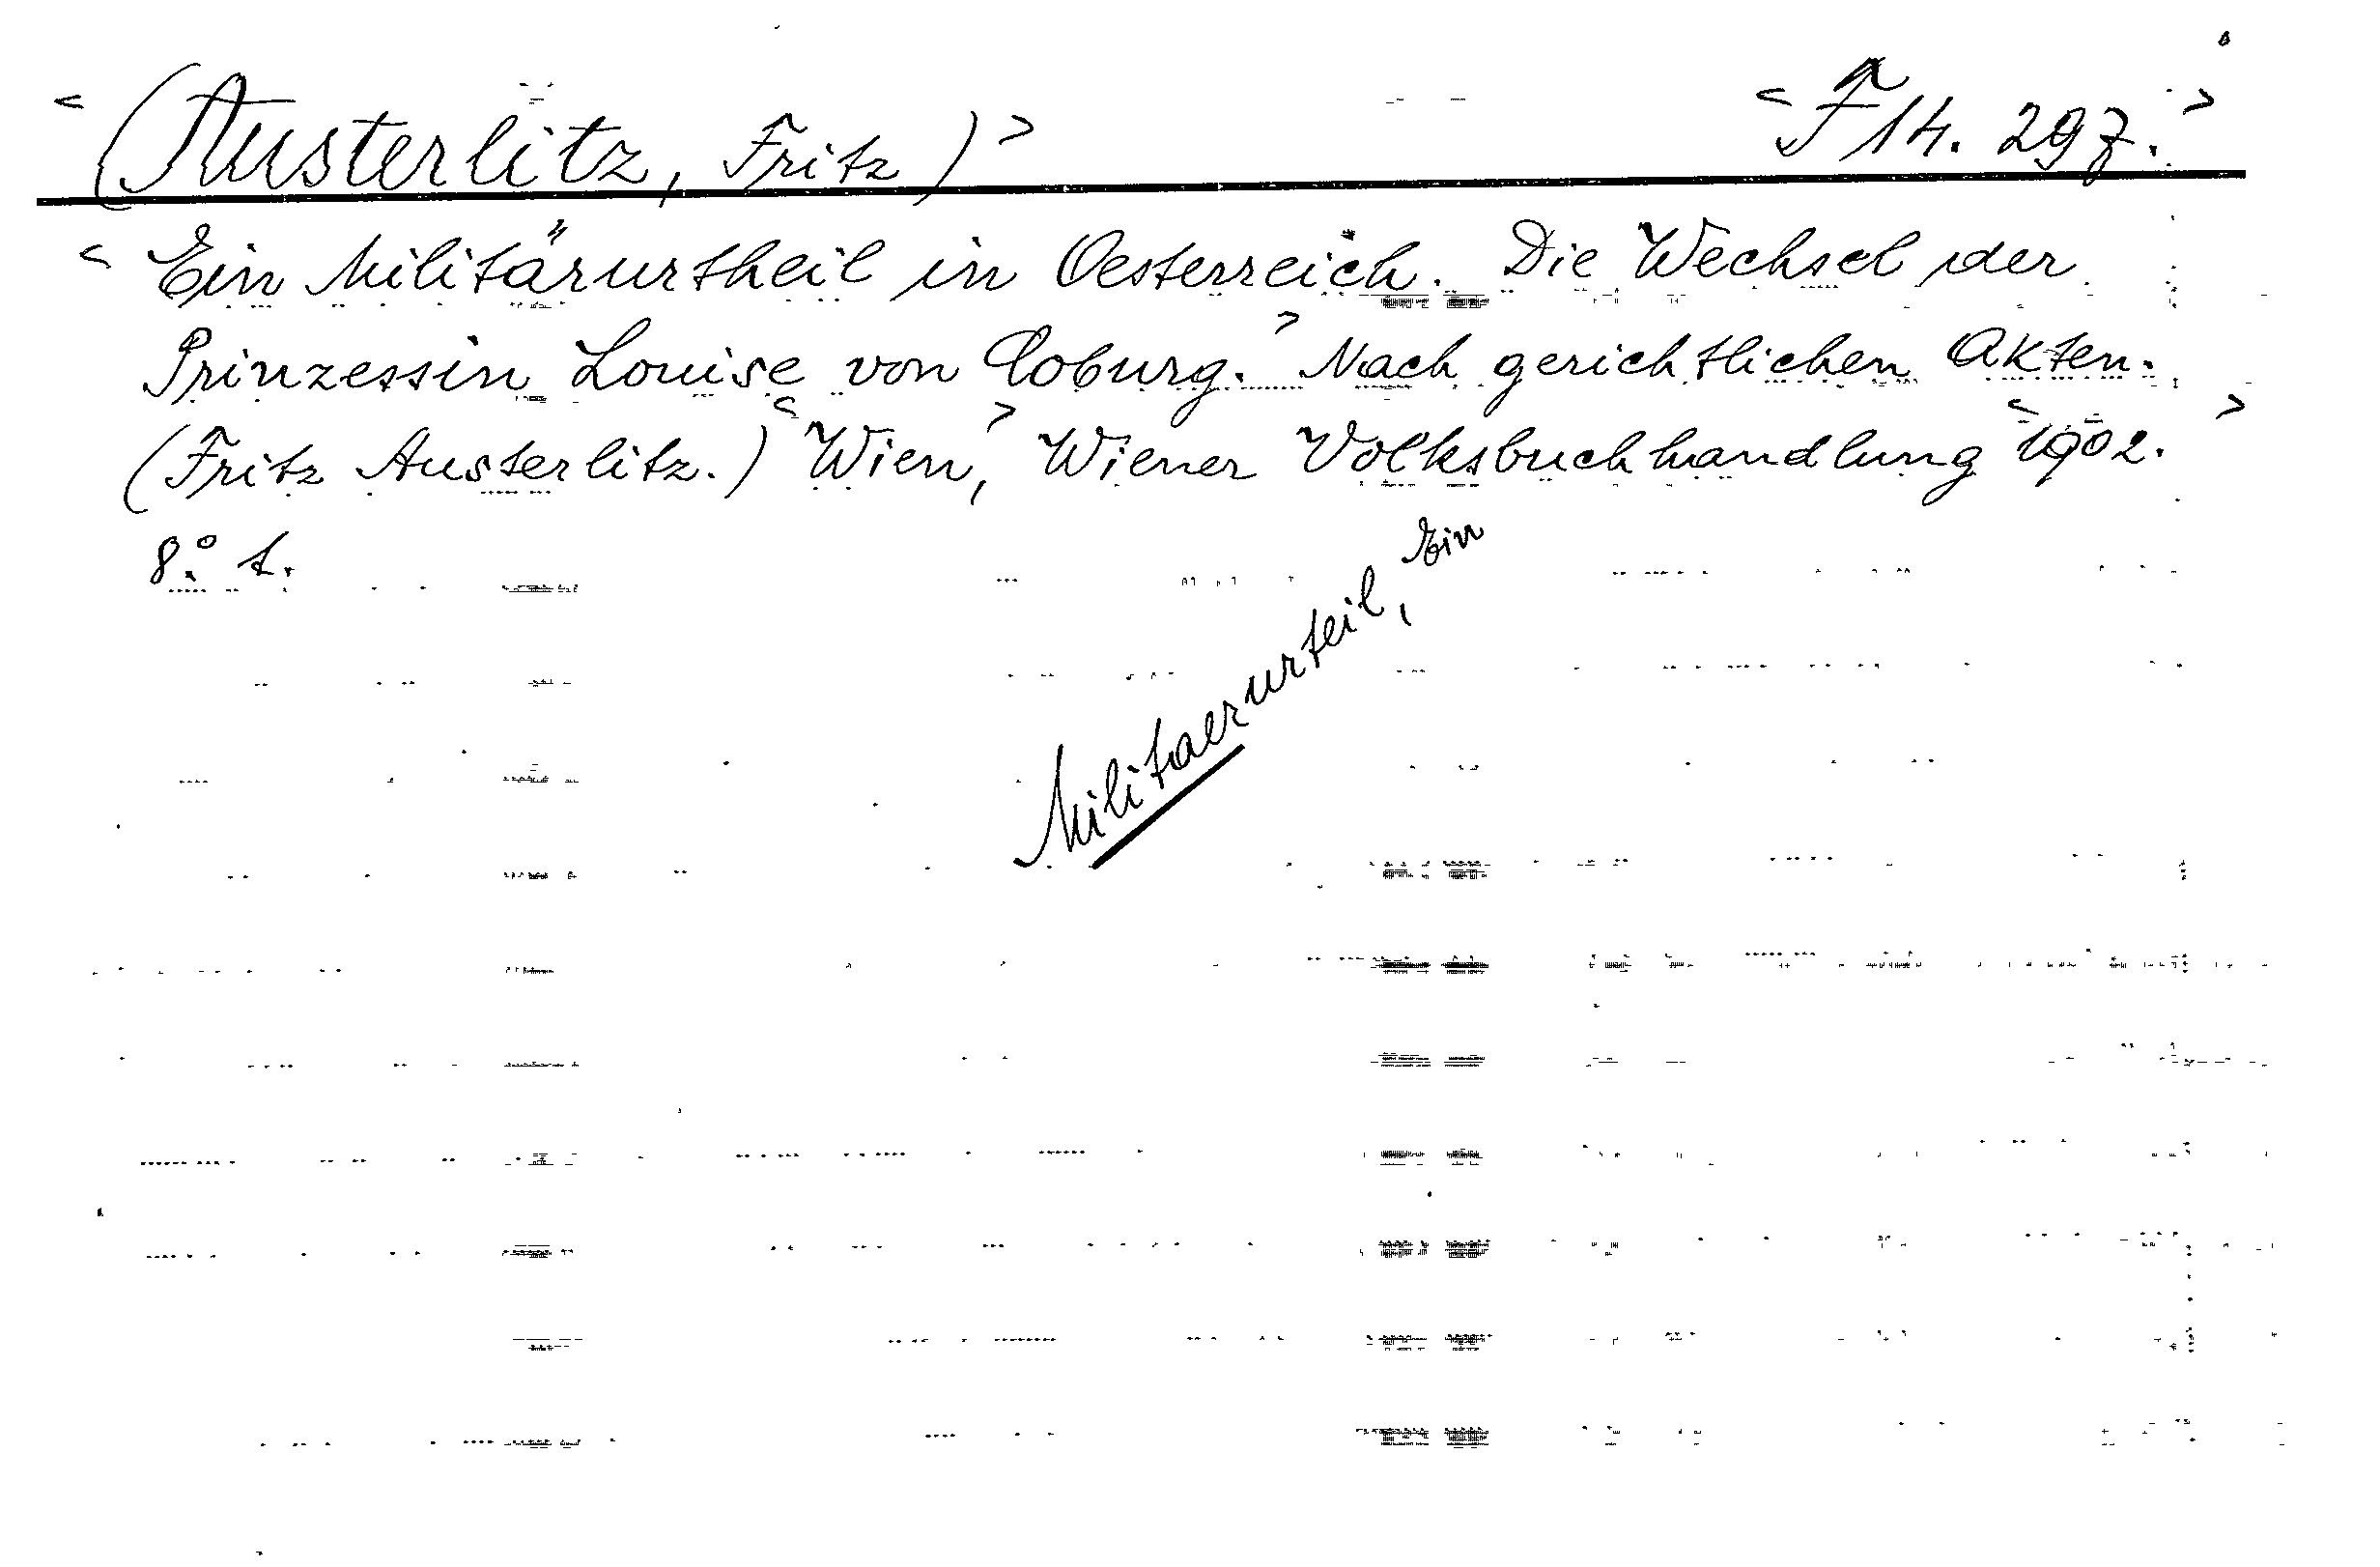 <(Austerlitz, Fritz)> <F 14. 29z.>
<Ein Militärurtheil in Oesterreich. Die Wechsel der
Prinzessin Louise von Coburg.> Nach gerichtlichen Akten.
(Fritz Austerlitz.) <Wien,> Wiener Volksbuchhandlung <1902.>
8.°
Militaerurteil, Ein